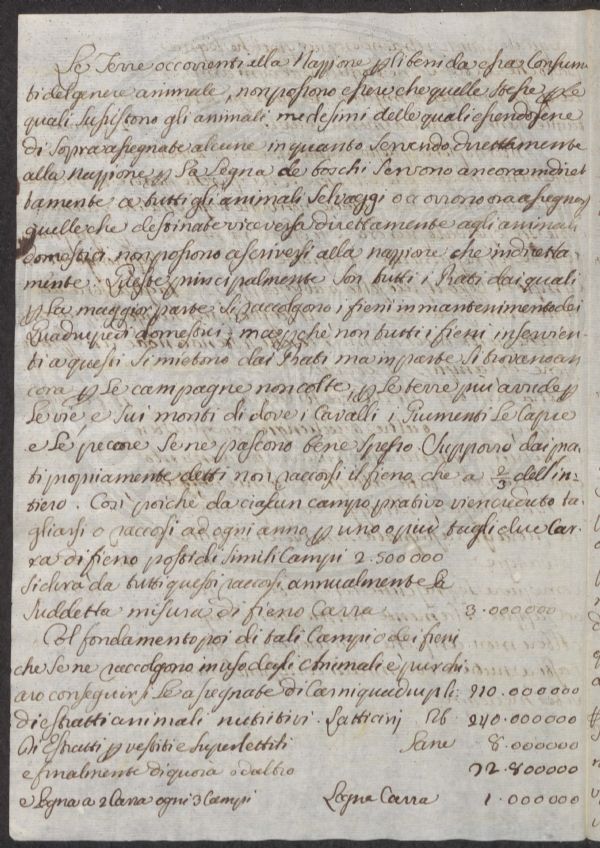 Le Terre occorrenti alla Nazione p li beni da essa consuma
ti del genere animale, non possono essere che quelle stesse p le
quali sussistono gli animali medesimi delle quali essendosene
di sopra assegnate alcune in quanto servendo direttamente
alla nazzione p la legna de boschi servono ancora indiret
tamente a tutti gli animali selvaggi occorrono ora assegnarsi
quelle che destinate viceversa direttamente agli animali
domestici non possono ascriversi alla nazzione che indiretta-
mente. Queste principalmente son tutti i Prati dai quali
p la maggior parte si raccolgono i fieni in mantenimento dei
Quadrupedi domestici; ma p che non tutti i fieni inservien-
ti a questi si mietono dai Prati ma in parte si trovano an
cora p le campagne non colte, p le terre più aride p
le vie, e sui monti di dove i Cavalli i Giumenti le Capre
e le pecore se ne pascono bene spesso. Supporrò dai pra
ti propriamente detti non raccorsi il fieno che a 2/3 dell'in-
tiero. Così poichè da ciascun campo prativo vien creduto ta
gliarsi o raccorsi ad ogni anno p uno o più tagli due Car
ra di fieno posti di simili Campi 2.500000
si dirà da tutti questi raccorsi annualmente la
suddetta misura di fieno Carra 3.000000
Col fondamento poi di tali Campi e dei fieni
che se ne raccolgono in uso degli Animali e p
conseguirsi le assegnate di Carni quadrupli: 910.000000
di estratti animali nutritivi. Latticinj lb 240.000000
di Estratti p vestiti e suppellettili Lane 8.000000
e finalmente di quoia o d'altro 32.800000
e Legna a 2 Carra ogni 3 Campi Legna Carra 1.000000